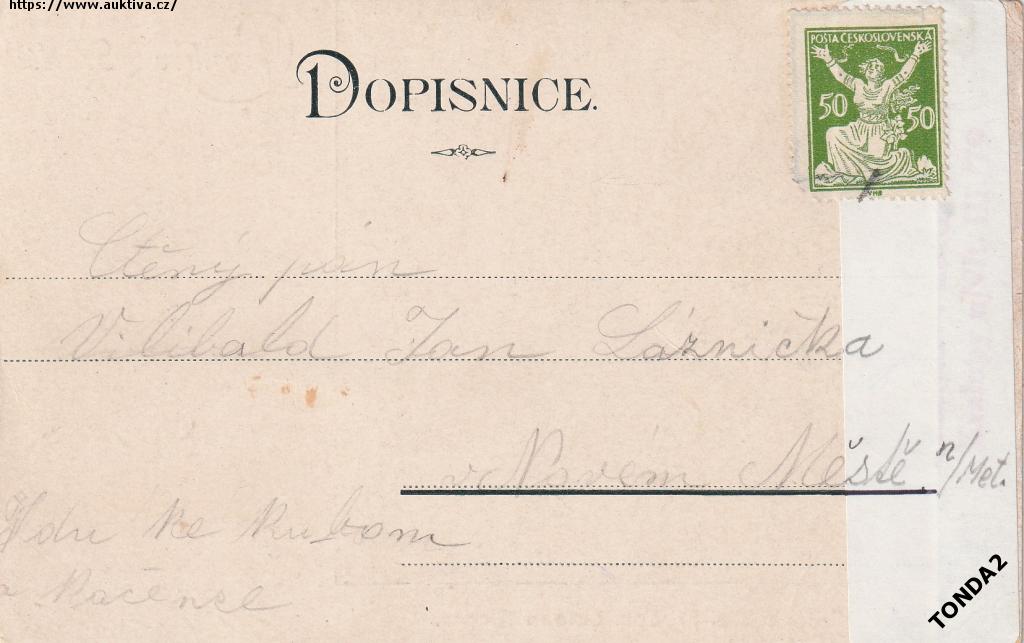 https://www.auktiva.cz/
DOPISNICE.
POŠTA ČESKOSLOVENSKÁ
50 50
Ctěný pán
Vilibald Jan Láznička
v Novém Městě n/Met.
ke
TONDA2